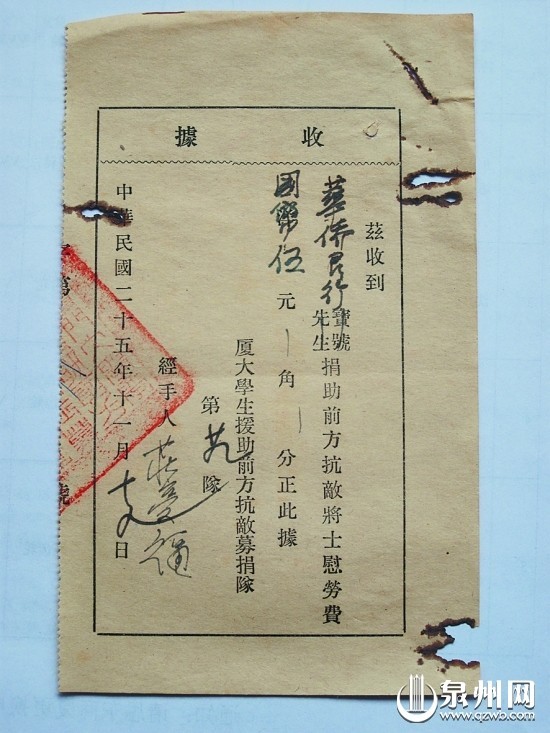 收據
茲收到
華僑銀行寶號先生捐助前方抗敵將士慰勞費
國幣伍元角分正此據
厦大學生援助前方抗敵募捐隊
第隊
經手人莊
中華民國二十五年十一月日
第號
泉州网
www.qzwb.com